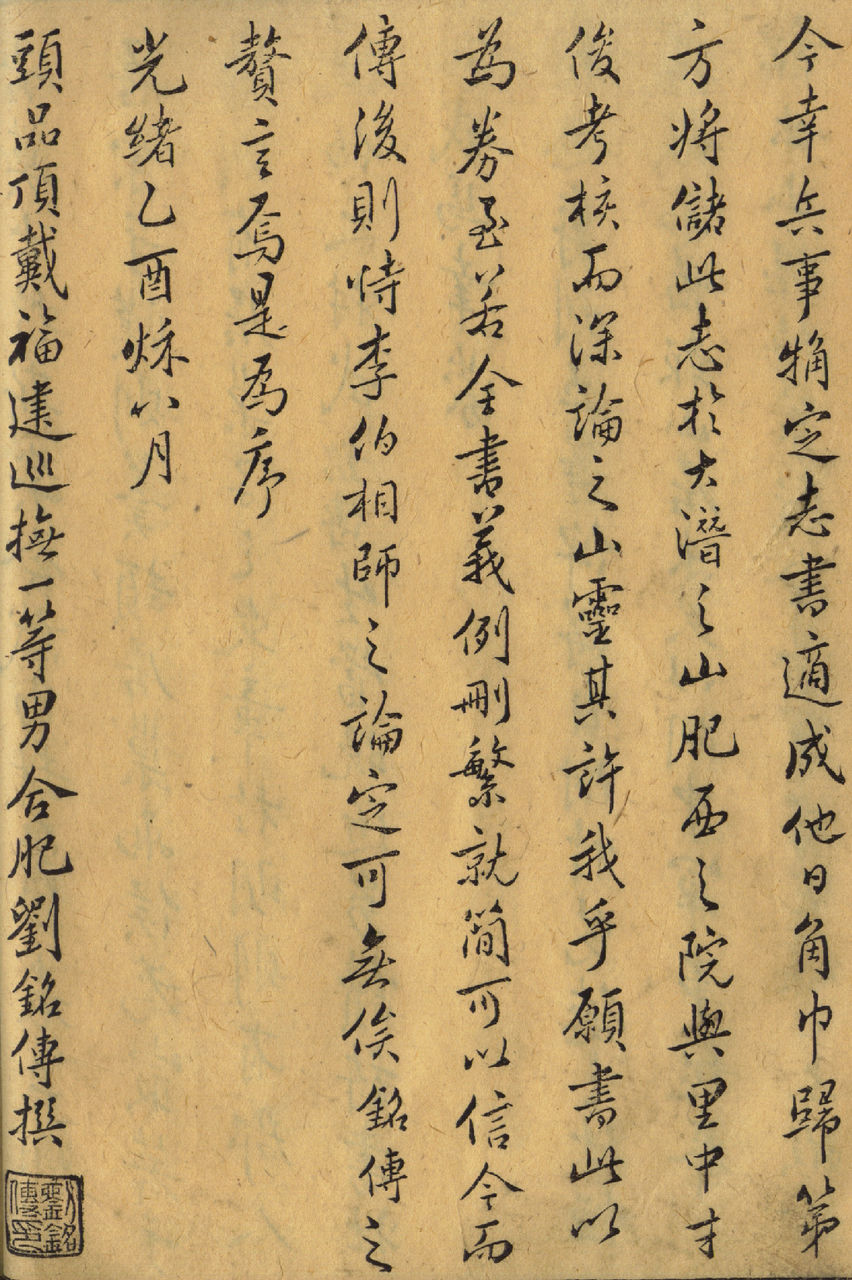 今幸兵事觕定志書適成他日角巾歸第
方將儲此志於大潛之山肥西之院與里中才
俊考核而深論之山靈其許我乎願書此以
為券至若全書義例刪繁就簡可以信今而
傳後則恃李伯相師之論定可無俟銘傳之
贅言焉是為序
光緒乙酉秌八月
頭品頂戴福建巡撫一等男合肥劉銘傳撰
劉銘傳印